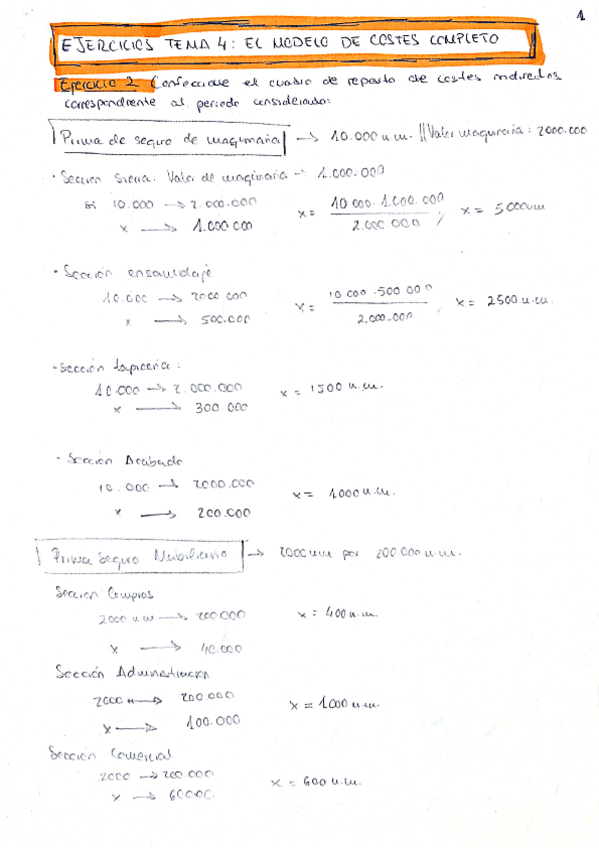 1
EJERCICIOS TEMA 4: EL MODELO DE COSTES COMPLETO
Ejercicio 2 Confeccione el cuadro de reparto de costes indirectos
correspondiente al periodo considerado:
Prima de seguro de maquinaria → 10.000 u.m. || Valor maquinaria: 2000.000
· Sección Sierra: Valor de maquinaria → 1.000.000
10.000 → 2.000.000
x → 1.000.000
x = 10.000 · 1.000.000 / 2.000.000 ; x = 5000um
· Sección ensamblaje
10.000 → 2000.000
x → 500.000
x = 10.000 · 500.000 / 2.000.000 ; x = 2500 u.m.
· Sección tapicería:
10.000 → 2.000.000
x → 300.000
x = 1500 u.m.
· Sección Acabado
10.000 → 2000.000
x → 200.000
x = 1000 u.m.
Prima Seguro Mobiliario → 2000 um por 200.000 u.m.
Sección Compras
2000 u.m → 200.000
x → 40.000
x = 400 u.m.
Sección Administración
2000 → 200.000
x → 100.000
x = 1000 u.m.
Sección Comercial
2000 → 200.000
x → 60000
x = 600 u.m.